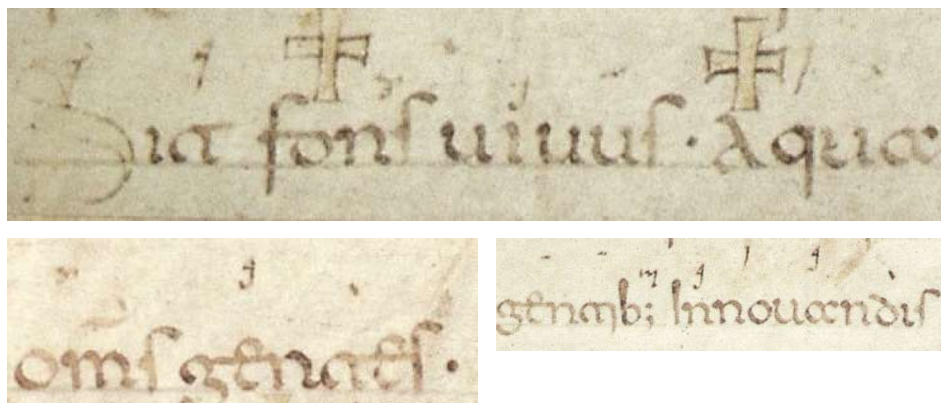 Sit fons uiuus · Aqua
om̄s gentes ·
gentib; Innouandis